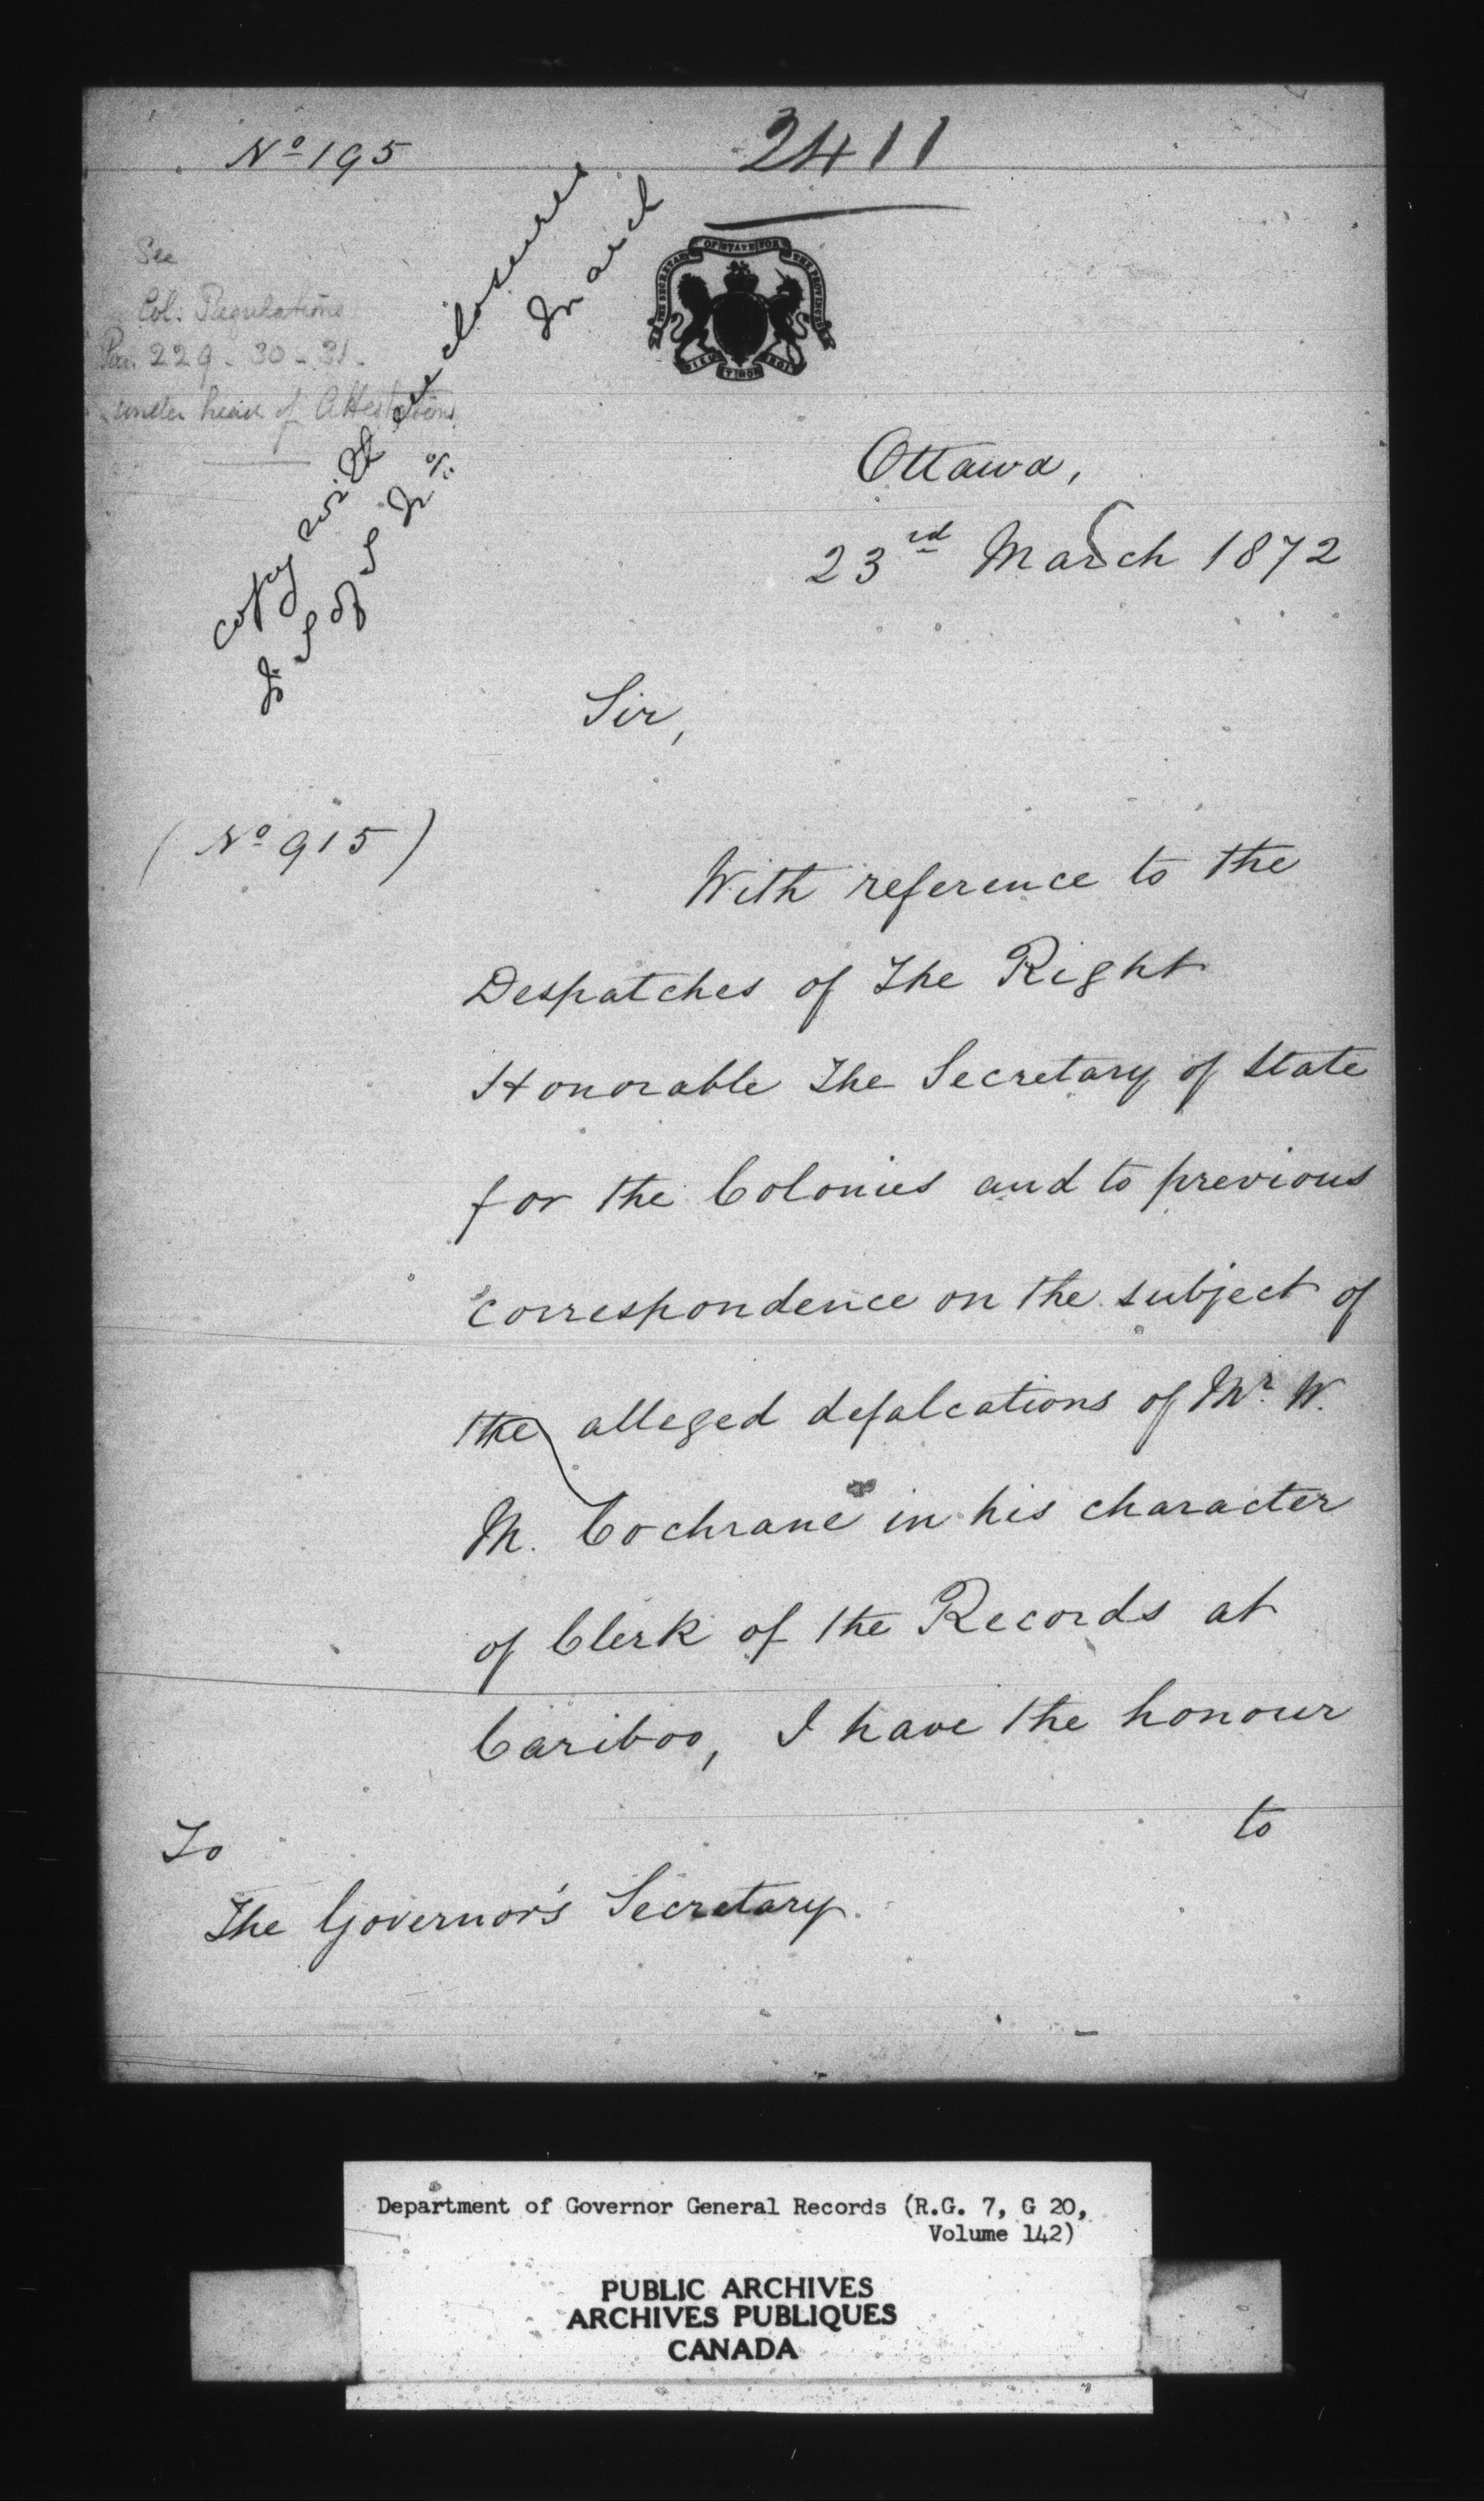 Nº 195
2411
See
Col. Regulations
Par. 229 - 30 - 31 -
under head of Attestations
copy with enclosures
to S of S In
March
OF STATE FOR
THE SECRETARY
THE PROVINCES
DIEU ET MON DROIT
Ottawa,
23rd March 1872
Sir,
(Nº 915)
With reference to the
Despatches of The Right
Honorable The Secretary of State
for the Colonies and to previous
correspondence on the subject of
the alleged defalcations of Mr. W.
M. Cochrane in his character
of Clerk of the Records at
Cariboo, I have the honour
to
To
The Governor's Secretary.
Department of Governor General Records (R.G. 7, G 20,
Volume 142)
PUBLIC ARCHIVES
ARCHIVES PUBLIQUES
CANADA